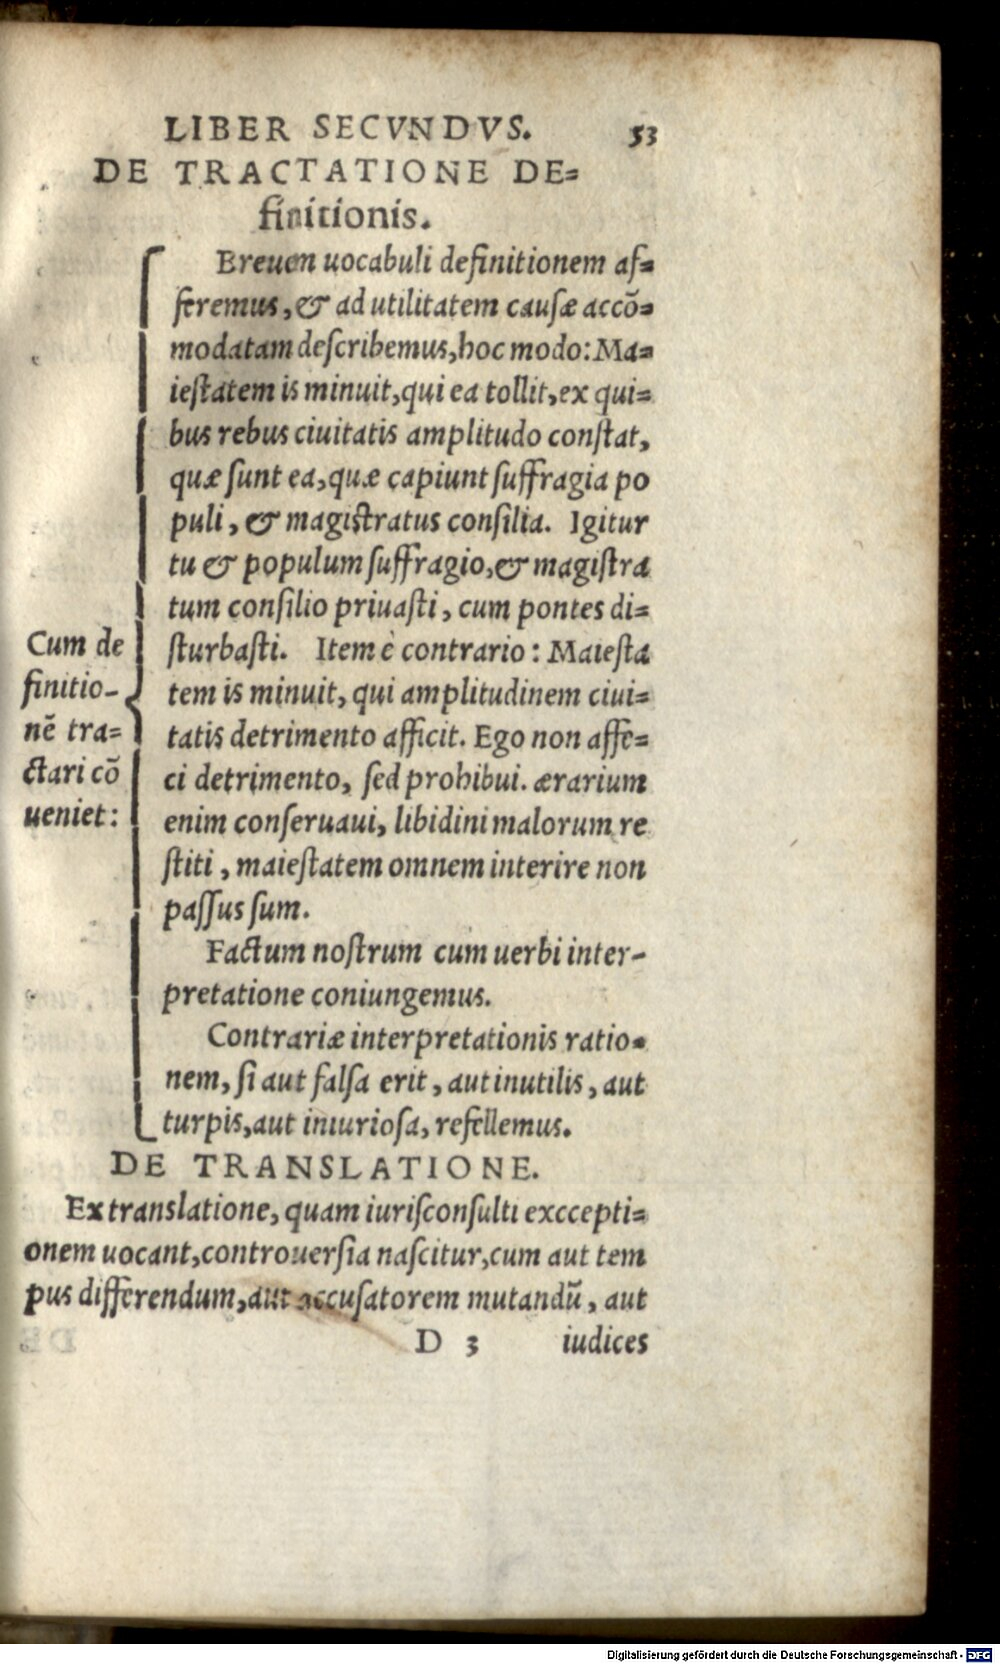 LIBER SECVNDVS. 53
DE TRACTATIONE DE=
finitionis.
Breuem uocabuli definitionem af=
feremus, & ad utilitatem causæ accõ=
modatam describemus, hoc modo: Ma=
iestatem is minuit, qui ea tollit, ex qui=
bus rebus ciuitatis amplitudo constat,
quæ sunt ea, quæ capiunt suffragia po
puli, & magistratus consilia. Igitur
tu & populum suffragio, & magistra
tum consilio priuasti, cum pontes di=
sturbasti. Item è contrario: Maiesta
tem is minuit, qui amplitudinem ciui=
tatis detrimento afficit. Ego non affe=
ci detrimento, sed prohibui. ærarium
enim conseruaui, libidini malorum re
stiti, maiestatem omnem interire non
passus sum.
Factum nostrum cum uerbi inter-
pretatione coniungemus.
Contrariæ interpretationis ratio=
nem, si aut falsa erit, aut inutilis, aut
turpis, aut iniuriosa, refellemus.
Cum de
finitio-
nẽ tra=
ctari cõ
ueniet:
DE TRANSLATIONE.
Ex translatione, quam iurisconsulti exccepti=
onem uocant, controuersia nascitur, cum aut tem
pus differendum, aut accusatorem mutandũ, aut
D 3 iudices
Digitalisierung gefördert durch die Deutsche Forschungsgemeinschaft - DFG